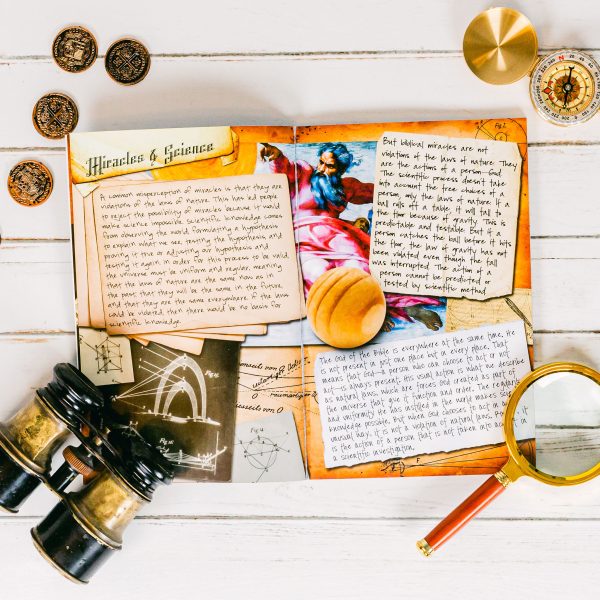 Miracles & Science
A common misperception of miracles is that they are
violations of the laws of nature. This has led people
to reject the possibility of miracles because it would
make science impossible. Scientific knowledge comes
from observing the world, formulating a hypothesis
to explain what we see, testing the hypothesis and
proving it true or adjusting our hypothesis and
testing it again. In order for this process to be valid,
the universe must be uniform and regular, meaning
that the laws of nature are the same now as in
the past, they will be the same in the future,
and that they are the same everywhere. If the laws
could be violated, then there would be no basis for
scientific knowledge.
But biblical miracles are not
violations of the laws of nature. They
are the actions of a person—God.
The scientific process doesn't take
into account the free choices of a
person, only the laws of nature. If a
ball rolls off a table, it will fall to
the floor because of gravity. This is
predictable and testable. But if a
person catches the ball before it hits
the floor, the law of gravity has not
been violated even though the fall
was interrupted. The action of a
person cannot be predicted or
tested by scientific method.
The God of the Bible is everywhere at the same time. He
is not present in just one place but in every place. That
means that God—a person who can choose to act or not
act—is always present. His usual action is what we describe
as natural laws, which are forces God created as part of
the universe that give it function and order. The regularity
and uniformity He has instilled in the world makes
knowledge possible. But when God chooses to act in an
unusual way, it is not a violation of natural laws.
is the action of a person that is not taken into account in
a scientific investigation.